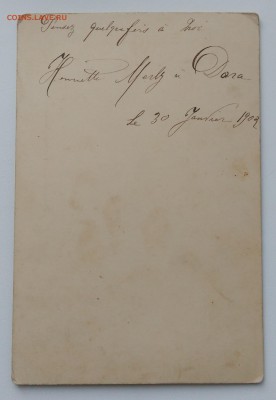 COINS.SU.RU
Pensez quelquefois à moi
Henriette à Dora
le 30 Janvier 1902